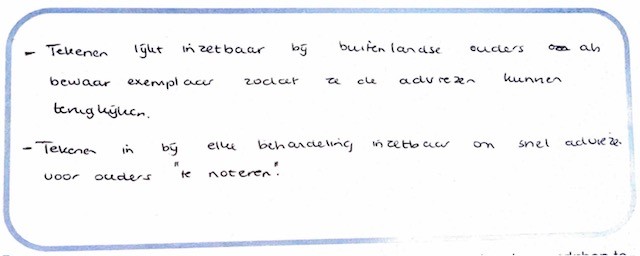 - Tekenen lijkt inzetbaar bij buitenlandse ouders als
bewaar exemplaar zodat ze de adviezen kunnen
terugkijken.
- Tekenen in bij elke behandeling inzetbaar om snel advieze
voor ouders "te noteren".